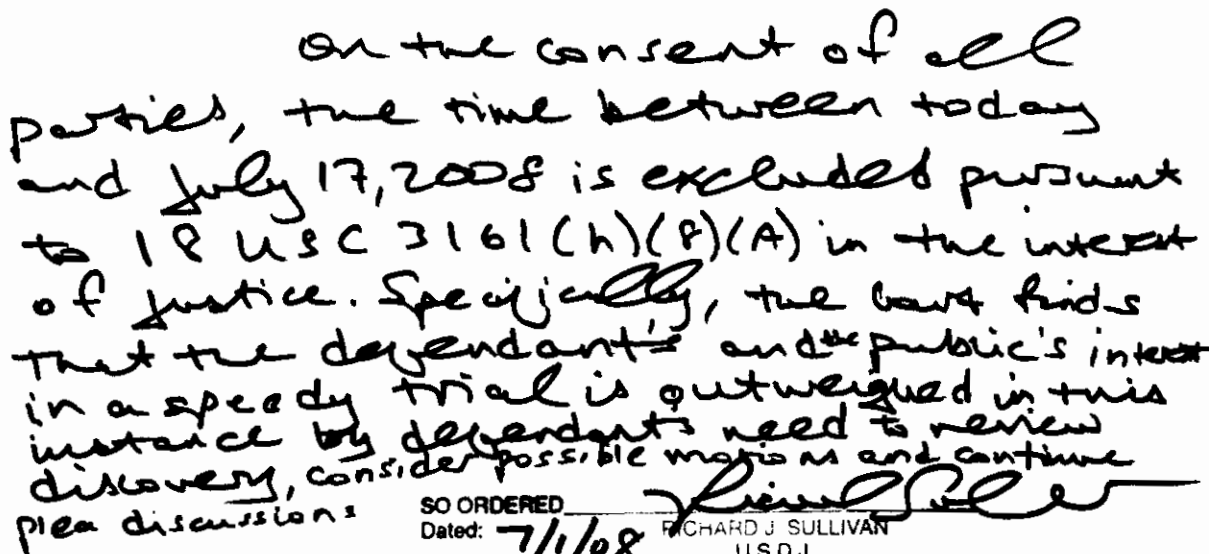 on the consent of all
parties, the time between today
and July 17, 2008 is excluded pursuant
to 18 USC 3161(h)(8)(A) in the interest
of justice. Specifically, the Court finds
that the defendant's and the public's interest
in a speedy trial is outweighed in this
instance by defendant's need to review
discovery, consider possible motions and continue
plea discussions
SO ORDERED
Dated: 7/1/08 RICHARD J. SULLIVAN
U.S.D.J.